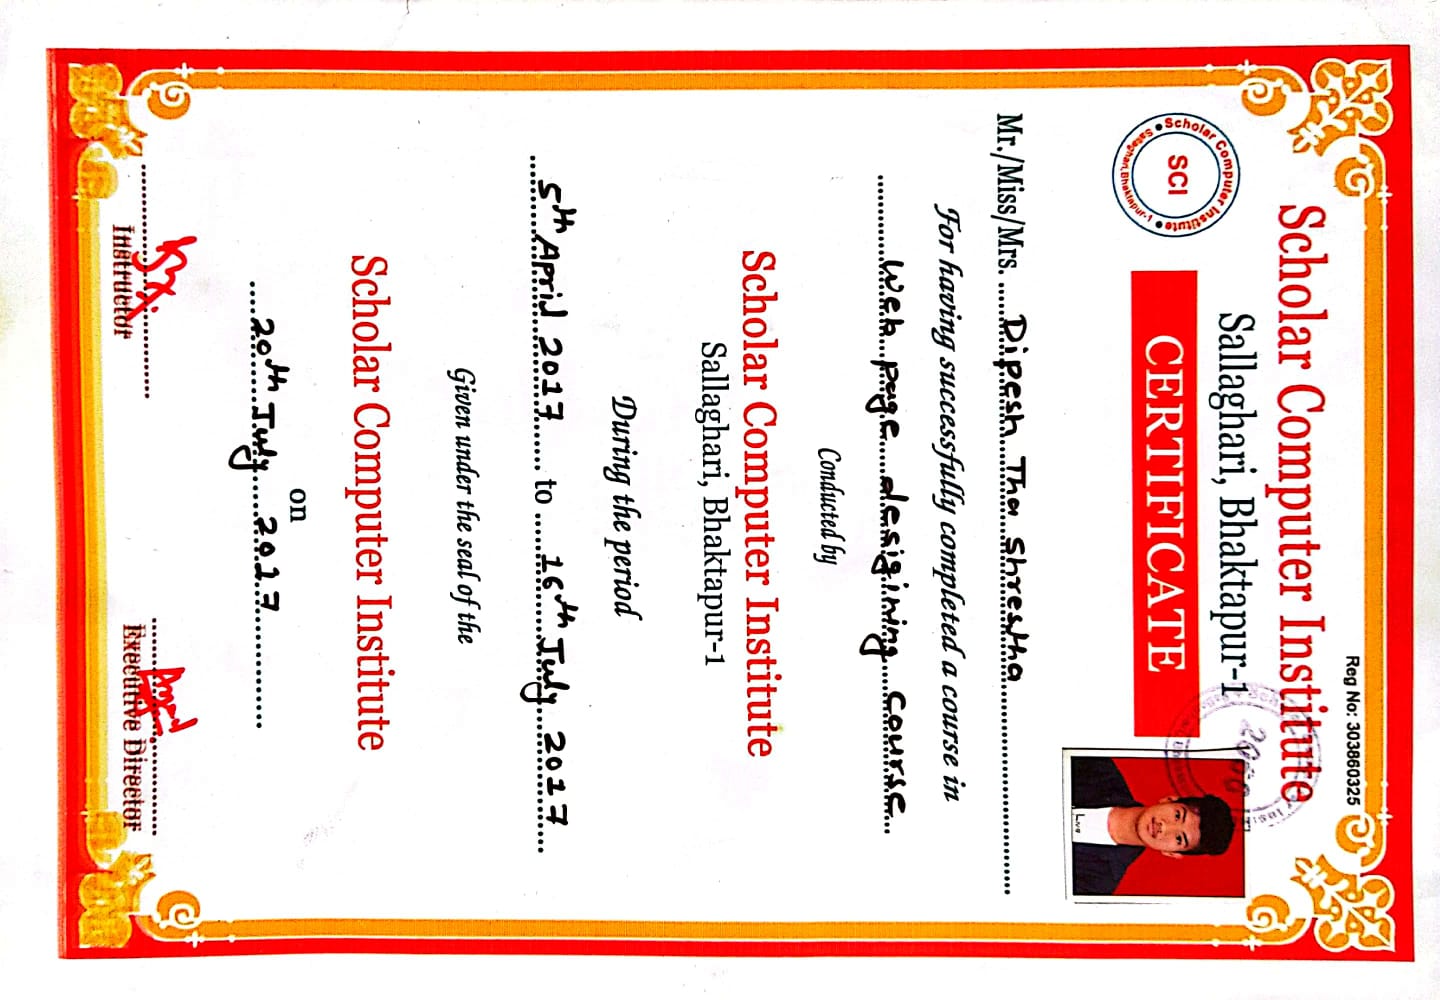 Reg No: 303860325
Scholar Computer Institute
Sallaghari, Bhaktapur-1
Scholar Computer Institute
Sallaghari, Bhaktapur-1
SCI
CERTIFICATE
Mr./Miss/Mrs. Dipesh Tha Shrestha
For having successfully completed a course in
Web page desigining course
Conducted by
Scholar Computer Institute
Sallaghari, Bhaktapur-1
During the period
5th April 2017 to 16th July 2017
Given under the seal of the
Scholar Computer Institute
on
20th July 2017
Instructor Executive Director